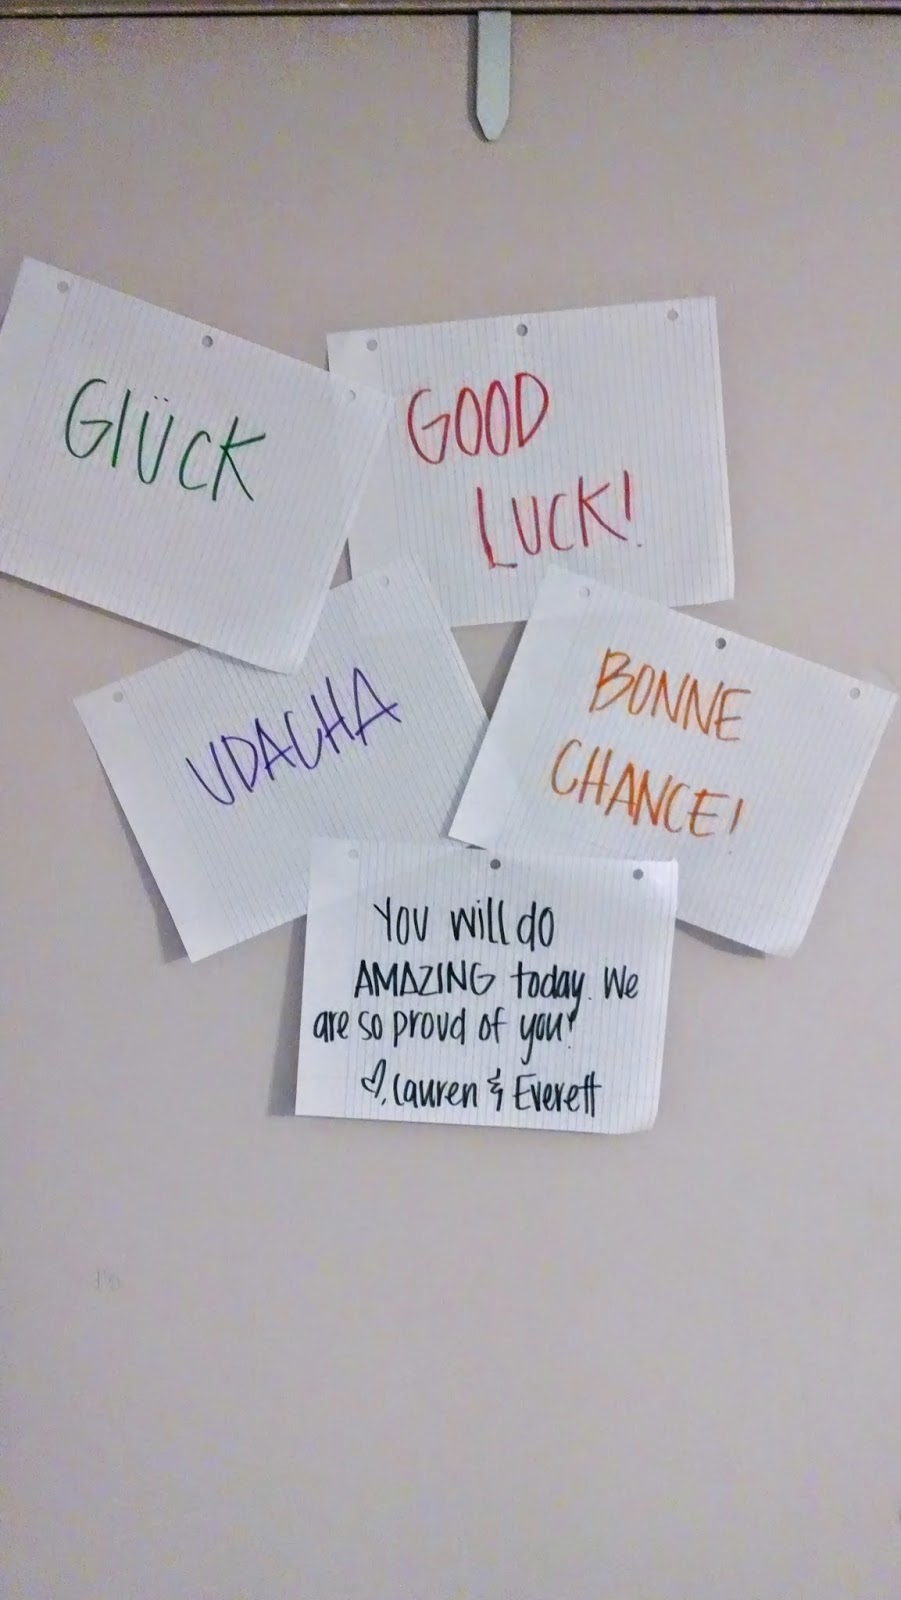 GlÜCK
GOOD
LUCK!
UDACHA
BONNE
CHANCE!
You will do
AMAZING today. We
are so proud of you!
♡, Lauren & Everett